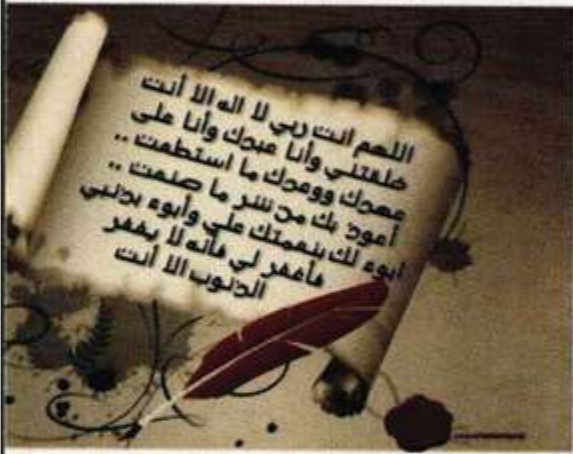 اللهم انت ربي لا اله الا أنت
خلقتني وأنا عبدك وأنا على
عهدك ووعدك ما استطعت ..
أعوذ بك من شر ما صنعت ..
ابوء لك بنعمتك علي وأبوء بذنبي
فأغفر لي فأنه لا يغفر
الذنوب الا أنت